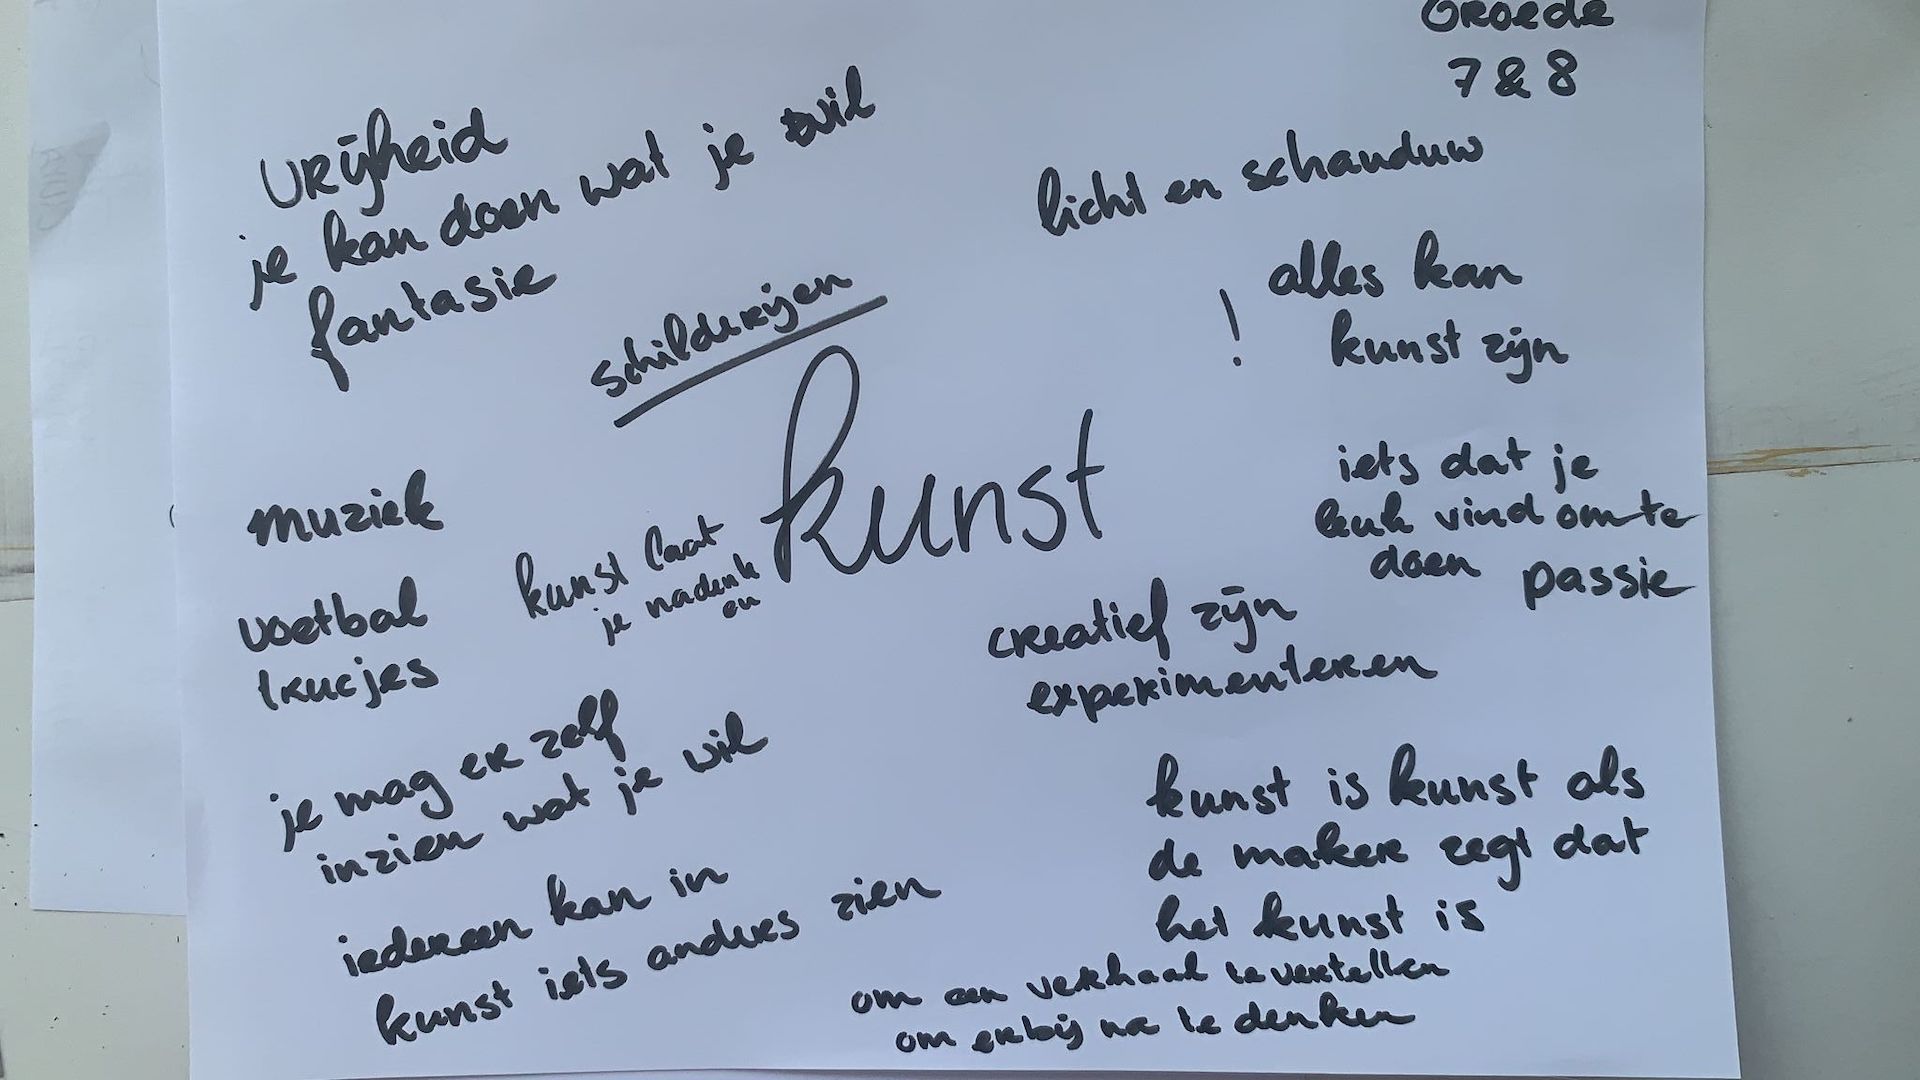 Groede
7 & 8
vrijheid
je kan doen wat je wil
fantasie
schilderijen
licht en schauduw
! alles kan
kunst zijn
kunst
muziek
kunst laat
je nadenk
en
iets dat je
leuk vind om te
doen passie
voetbal
trucjes
creatief zijn
experimenteren
je mag er zelf
inzien wat je wil
kunst is kunst als
de maker zegt dat
het kunst is
iedereen kan in
kunst iets anders zien
om een verhaal te vertellen
om erbij na te denken